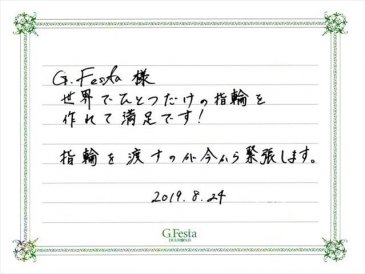 G.Festa 様
世界でひとつだけの指輪を
作れて満足です!
指輪を渡すのが今から緊張します。
2019.8.24
G.Festa
DIAMOND